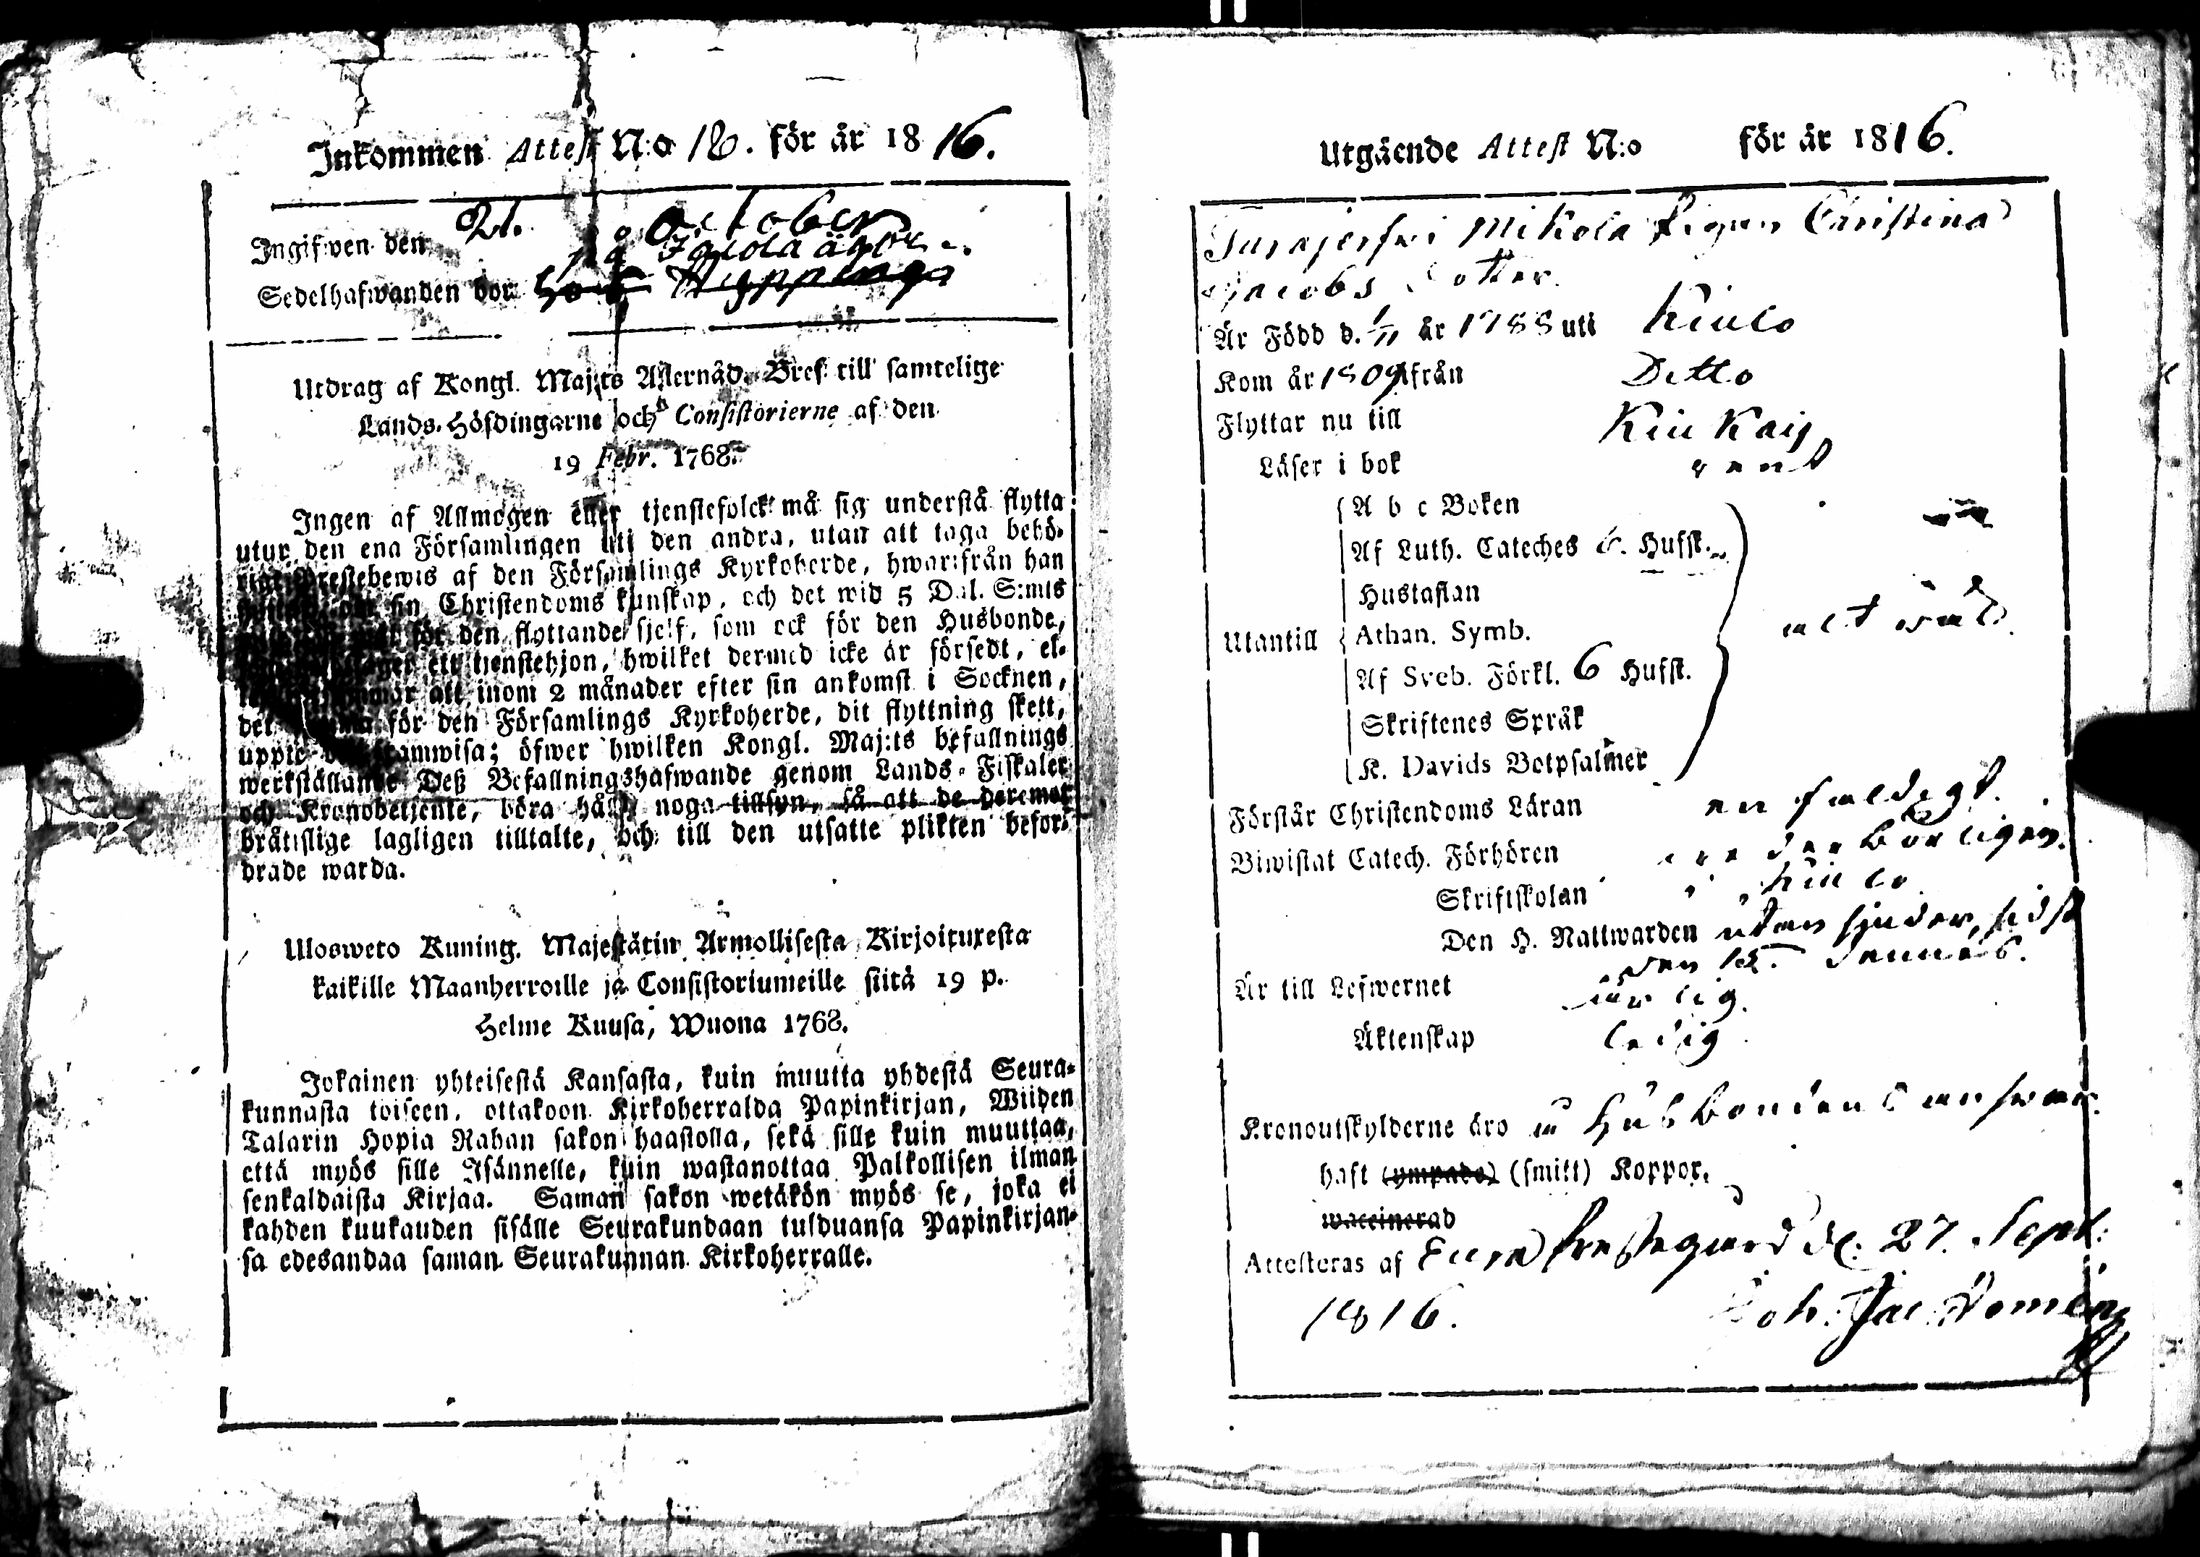 Inkommen Attest N:o 18. för år 1816.
Ingifwen den 21. October
på Jaiola ägor.
Sedelhafwanden bor hos Hyppinge
Utdrag af Kongl. Maj:ts Allernåd. Bref till samtelige
Lands-Höfdingarne och Consistorierne af den
19 Febr. 1768.
Ingen af Allmogen eller tjenstefolck må sig understå flytta
utur den ena Församlingen uti den andra, utan att taga behö-
rigt Prestebewis af den Församlings Kyrkoherde, hwarifrån han
sin Christendoms kunskap, och det wid 5 Dal. S:mts
för den flyttande sjelf, som ock för den Husbonde,
ett tienstehjon, hwilket dermed icke är försedt, el-
att inom 2 månader efter sin ankomst i Socknen,
det för den Församlings Kyrkoherde, dit flyttning skett,
uppte framwisa; öfwer hwilken Kongl. Maj:ts befallnings
werkställande Deß Befallningshafwande genom Lands-Fiskaler
och Kronobetjente, böra hålla noga tillsyn, så att de deremot
bråtslige lagligen tilltalte, och till den utsatte plikten befor-
drade warda.
Ulosweto Kuning. Majestätin Armollisesta Kirjoituxesta
kaikille Maanherroille ja Consistoriumeille siitä 19 p.
Helme Kuusa, Wuona 1768.
Jokainen yhteisestä Kansasta, kuin muutta yhdestä Seura-
kunnasta toiseen, ottakoon Kirkoherralda Papinkirjan, Wiiden
Talarin Hopia Rahan sakon haastolla, sekä sille kuin muuttaa,
että myös sille Isännelle, kuin wastanottaa Palkollisen ilman
senkaldaista Kirjaa. Saman sakon wetäkön myös se, joka ei
kahden kuukauden sisälle Seurakundaan tulduansa Papinkirjan-
sa edesandaa saman Seurakunnan Kirkoherralle.
Utgående Attest N:o för år 1816.
Turajerfwi Mikola Pigan Christina
Jacobs Dotter.
Är Född d. 1/11 år 1788 uti Kiulo
Kom år 1809 ifrån Detto
Flyttar nu till Kiu Kais
Läser i bok rent
A b c Boken
Af Luth. Cateches 6. Hufst.
Hustaflan
Utantill Athan. Symb. alt wäl.
Af Sveb. Förkl. 6 Hufst.
Skriftenes Språk
K. Davids Botpsalmer
Förstår Christendoms Läran enfaldigt.
Biwistat Catech. Förhören wederbörligen.
Skriftskolan i Kiulo
Den H. Nattwarden utan hinder, sidst
den 15. dennes.
Är till Lefwernet ärlig.
Äktenskap ledig
Kronoutskylderne äro å Husbondens answar.
haft (ympade) (smitt) Koppor.
waccinerad
Attesteras af Eura Prestegård d. 27. Sept:
1816. Joh. Jac. Domén